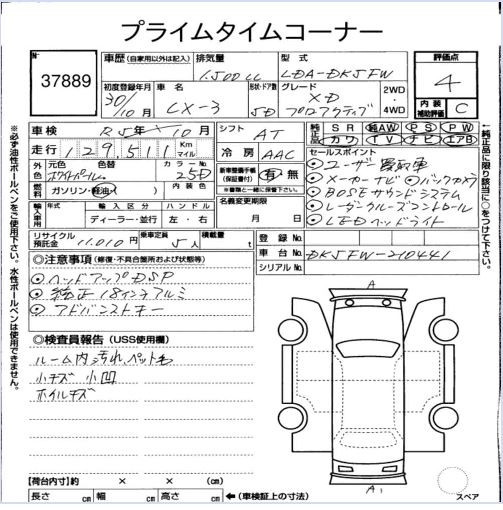 プライムタイムコーナー
№ 37889
車歴 (自家用以外は記入)
排気量 1.500cc
型式 LDA-DK5FW
評価点 4
内装補助評価 C
初度登録年月 30/10月
車名 CX-3
形状・ドア数 5D
グレード XD プロアクティブ
2WD・4WD
車検 R5年10月
シフト AT
純正品 SR 純AW PS PW
カワ TV ナビ エアB
走行 129,511 Km マイル
冷房 AAC
セールスポイント
外色 元色 ホワイトパール 色替 カラーNo. 25D
新車整備手帳(保証書付) 有・無
※書類と一緒に保管下さい。
燃料 ガソリン・軽油・( ) 内装色
名義変更期限 月 日
輸入車用 年式 輸入区分 ディーラー・並行 ハンドル 左・右
⊙ユーザー買取車
⊙メーカーナビ ⊙バックカメラ
⊙BOSEサウンドシステム
⊙レーダークルーズコントロール
⊙LEDヘッドライト
リサイクル預託金 11.010円
乗車定員 5人
積載量 t
登録No.
車台No. DK5FW-210441
シリアルNo.
◎注意事項 (修復・不具合箇所および状態等)
⊙ヘッドアップDSP
⊙純正18インチアルミ
⊙アドバンストキー
◎検査員報告 (USS使用欄)
ルーム内汚れ、ペット毛
小キズ 小凹
ホイルキズ
A
A1
スペア
【荷台内寸】約 × × (cm)
長さ cm 幅 cm 高さ cm ←(車検証上の寸法)
※必ず油性ボールペンをご使用下さい。水性ボールペンは使用できません。
←純正品に限り該当に○をつけて下さい。